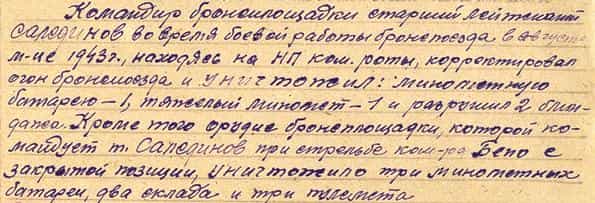 Командир бронеплощадки старший лейтенант
Саледінов во время боевой работы бронепоезда в августе
м-це 1943 г., находясь на НП ком. роты, корректировал
огон бронепоезда и уничтожил: минометную
батарею – 1, тяжелый миномет – 1 и разрушил 2 блин-
дажа. Кроме того орудие бронеплощадки, которой ко-
мандует т. Саледінов при стрельбе ком-ра Бепо с
закрытой позиции, уничтожило три минометных
батареи, два склада и три пулемета